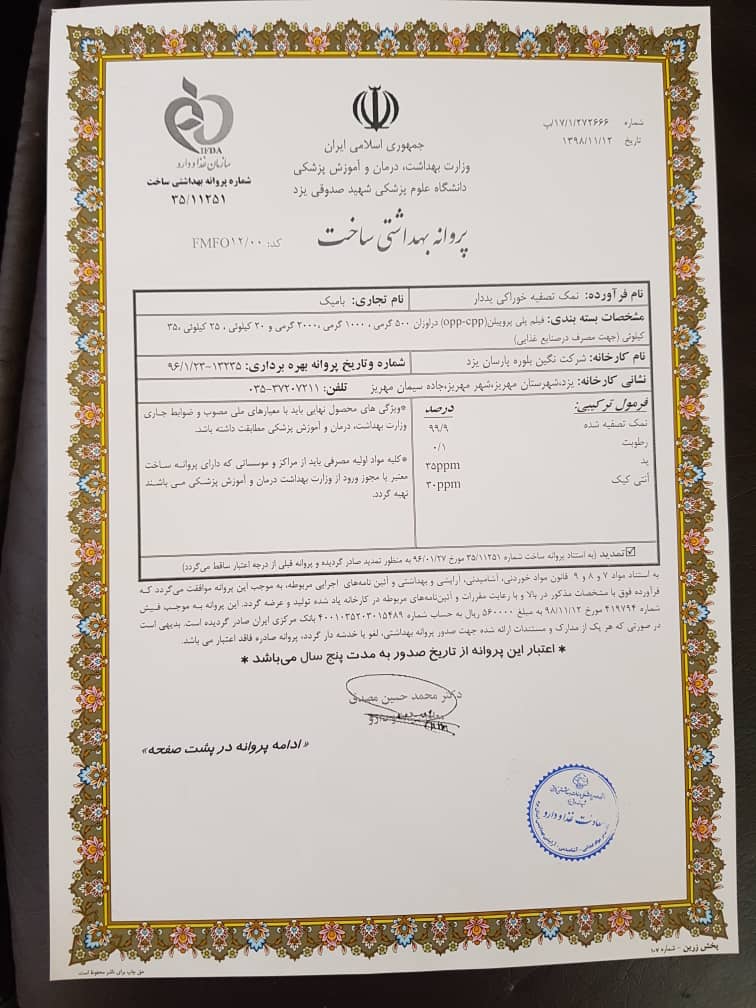 شماره ۱۷/۱/۲۷۲۶۶۶/پ
تاریخ ۱۳۹۸/۱۱/۱۲
جمهوری اسلامی ایران
وزارت بهداشت، درمان و آموزش پزشکی
دانشگاه علوم پزشکی شهید صدوقی یزد
IFDA
سازمان غذا و دارو
شماره پروانه بهداشتی ساخت
۳۵/۱۱۲۵۱
پروانه بهداشتی ساخت
کد: FMFO۱۲/۰۰
نام فرآورده: نمک تصفیه خوراکی یددار
نام تجاری: بامیک
مشخصات بسته بندی: فیلم پلی پروپیلن(opp-cpp) دراوزان ۵۰۰ گرمی ، ۱۰۰۰ گرمی ،۲۰۰۰ گرمی و ۲۰ کیلوئی ، ۲۵ کیلوئی ،۳۵
کیلوئی (جهت مصرف درصنایع غذایی)
نام کارخانه: شرکت نگین بلوره پارسان یزد
شماره وتاریخ پروانه بهره برداری: ۱۳۲۳۵-۹۶/۱/۲۳
نشانی کارخانه: یزد،شهرستان مهریز،شهر مهریز،جاده سیمان مهریز
تلفن: ۳۷۲۰۷۲۱۱-۰۳۵
فرمول ترکیبی: درصد
نمک تصفیه شده ۹۹/۹
رطوبت ۰/۱
ید ۳۵ppm
آنتی کیک ۳۰ppm
*ویژگی های محصول نهایی باید با معیارهای ملی مصوب و ضوابط جاری
وزارت بهداشت، درمان و آموزش پزشکی مطابقت داشته باشد.
*کلیه مواد اولیه مصرفی باید از مراکز و موسساتی که دارای پروانه ساخت
معتبر یا مجوز ورود از وزارت بهداشت درمان و آموزش پزشکی می باشند
تهیه گردد.
☑تمدید (به استناد پروانه ساخت شماره ۳۵/۱۱۲۵۱ مورخ ۹۶/۰۱/۲۷ به منظور تمدید صادر گردیده و پروانه قبلی از درجه اعتبار ساقط می‌گردد)
به استناد مواد ۷ و ۸ و ۹ قانون مواد خوردنی، آشامیدنی، آرایشی و بهداشتی و آئین نامه‌های اجرایی مربوطه، به موجب این پروانه موافقت می‌گردد که
فرآورده فوق با مشخصات مذکور در بالا و با رعایت مقررات و آئین‌نامه‌های مربوطه در کارخانه یاد شده تولید و عرضه گردد. این پروانه به موجب فیش
شماره ۴۱۹۷۹۴ مورخ ۹۸/۱۱/۱۲ به مبلغ ۵۶۰۰۰۰ ریال به حساب شماره ۴۰۰۱۰۳۵۲۰۳۰۱۵۴۸۹ بانک مرکزی ایران صادر گردیده است. بدیهی است
در صورتی که هر یک از مدارک و مستندات ارائه شده جهت صدور پروانه بهداشتی، لغو یا خدشه دار گردد، پروانه صادره فاقد اعتبار می باشد.
* اعتبار این پروانه از تاریخ صدور به مدت پنج سال می‌باشد *
دکتر محمد حسین مصدق
«ادامه پروانه در پشت صفحه»
معاونت غذا و دارو
پخش زرین - شماره ۱۰۷
حق چاپ برای ناشر محفوظ است